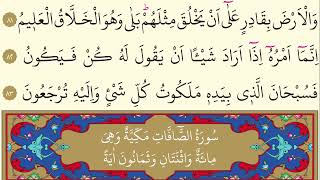 وَالْاَرْضَ بِقَادِرٍ عَلٰٓى اَنْ يَخْلُقَ مِثْلَهُمْ بَلٰى وَهُوَ الْخَلَّاقُ الْعَلٖيمُ ٨١
اِنَّمَٓا اَمْرُهُٓ اِذَٓا اَرَادَ شَيْـًٔا اَنْ يَقُولَ لَهُ كُنْ فَيَكُونُ ٨٢
فَسُبْحَانَ الَّذٖى بِيَدِهٖ مَلَكُوتُ كُلِّ شَیْءٍ وَاِلَيْهِ تُرْجَعُونَ ٨٣
سُورَةُ الصَّٓافَّاتِ مَكِّيَّةٌ وَهِىَ
مِائَةٌ وَاثْنَتَانِ وَثَمَانُونَ اٰيَةً